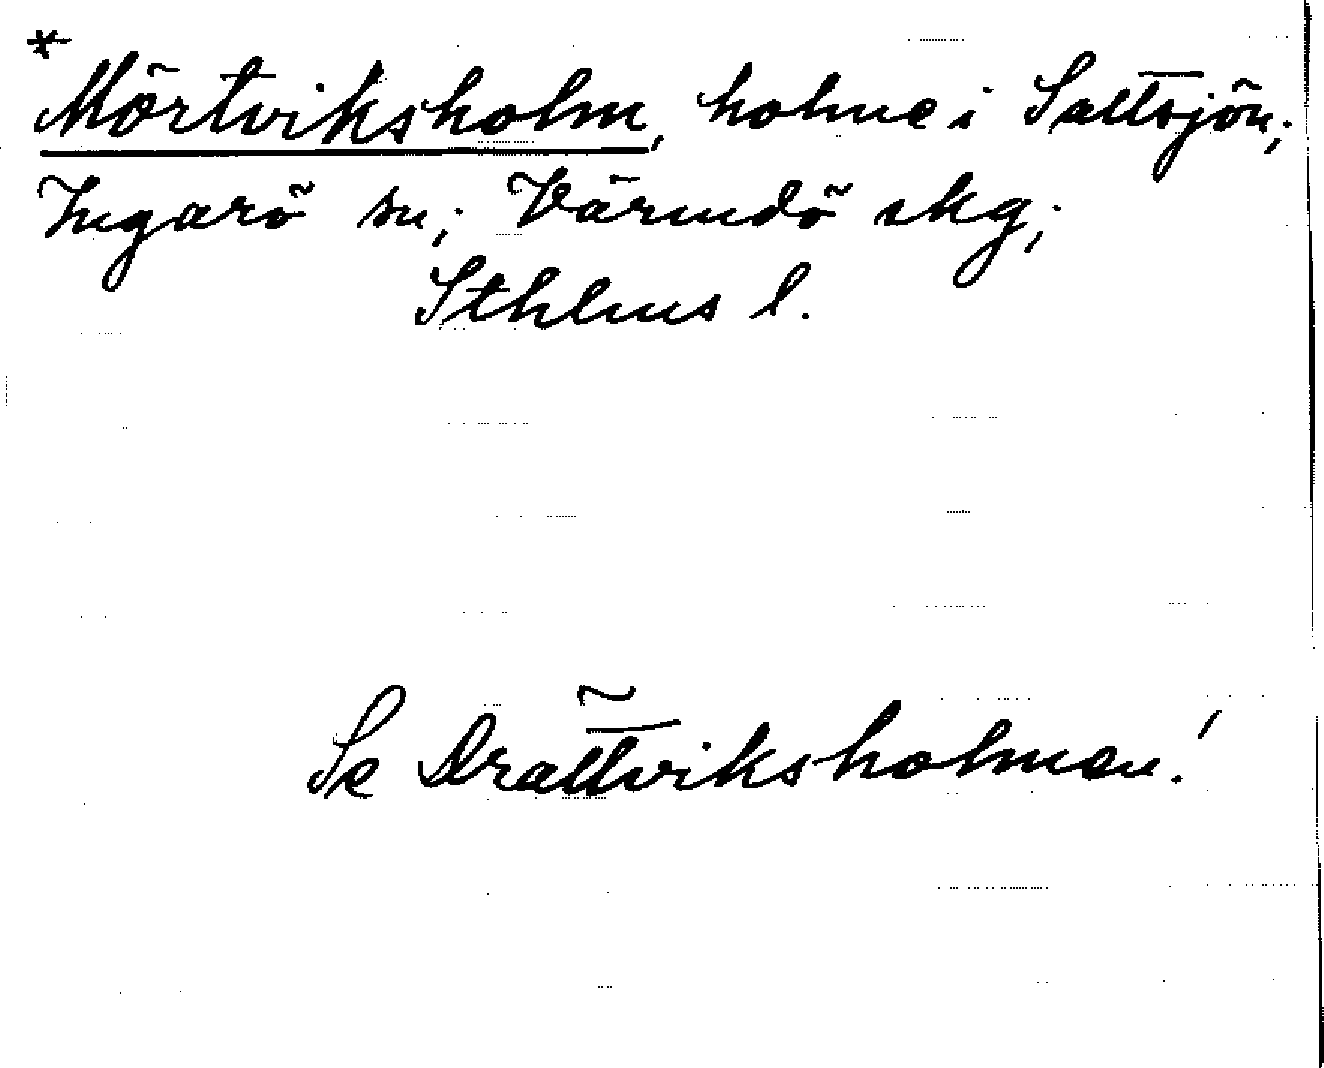 * Mörtviksholm, holme i Saltsjön;
Ingarö sn; Värmdö skg;
Sthlms l.
Se Drättviksholmen!